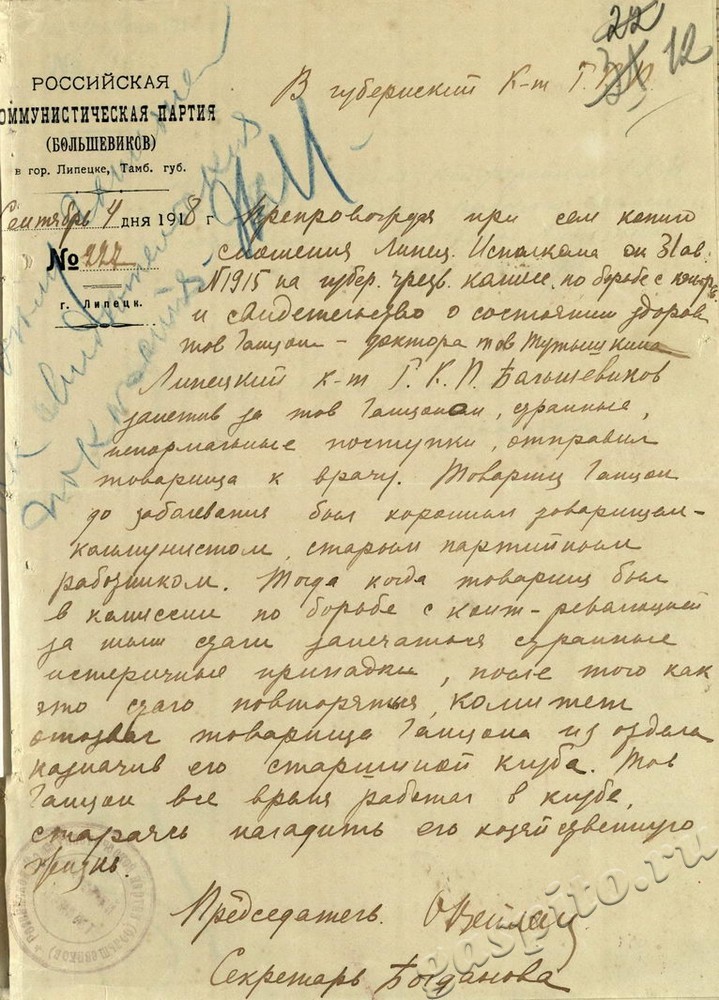 22
12
В губернский К-т Р.К.П.
РОССИЙСКАЯ
КОММУНИСТИЧЕСКАЯ ПАРТИЯ
(БОЛЬШЕВИКОВ)
в гор. Липецке, Тамб. губ.
Сентябрь 4 дня 1918 г
№ 222
г. Липецк.
Препровождая при сем копию
сношения Липец. Исполкома от 31 ав.
N1915 на губер. чрезв. комис. по борьбе с контр
и свидетельство о состоянии здоров
тов Ганцон - доктора тов Мутышкина
Липецкий к-т Р.К.П. Большевиков
заметив за тов Ганцоном, странные,
ненормальные поступки, отправил
товарища к врачу. Товарищ Ганцон
до заболевания был хорошим товарищем-
коммунистом, старым партийным
работником. Тогда когда товарищ был
в комиссии по борьбе с конт-революцией
за ним стали замечаться странные
истеричные припадки, после того как
это стало повторяться, комитет
отозвал товарища Ганцона из отдела
назначив его старшиной клуба. Тов
Ганцон все время работал в клубе,
стараясь наладить его хозяйственную
жизнь.
Председатель.
Секретарь Богданова
gaspito.ru